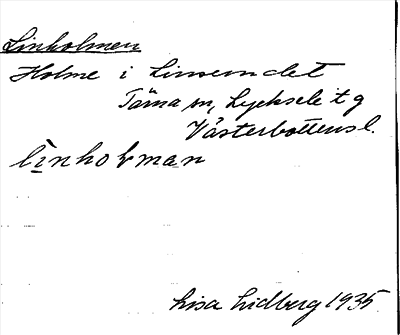 Linholmen
Holme i Linsundet
Tärna sn, Lycksele tg
Västerbottensl.
linholman
Lisa Lidberg 1935